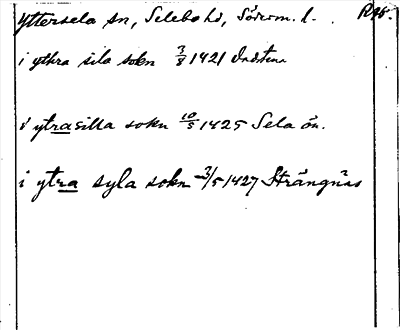 Yttersela sn, Selebo hd, Söderm. l. Rap.
i ythra sila sokn 3/8 1421
i ytrasilla sokn 10/5 1425 Sela ön.
i ytra syla sokn 3/5 1427 Strängnäs